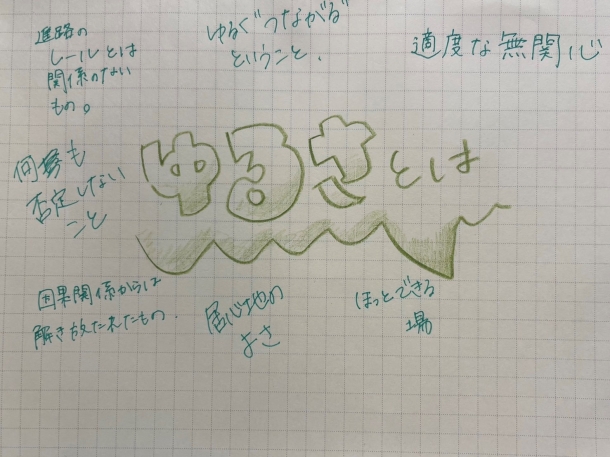 進路の
レールとは
関係のない
もの。
ゆるく"つながる"
ということ.
適度な無関心
何事も
否定しない
こと
ゆるさとは
因果関係からは
解き放たれたもの.
居心地の
よさ
ほっとできる
場